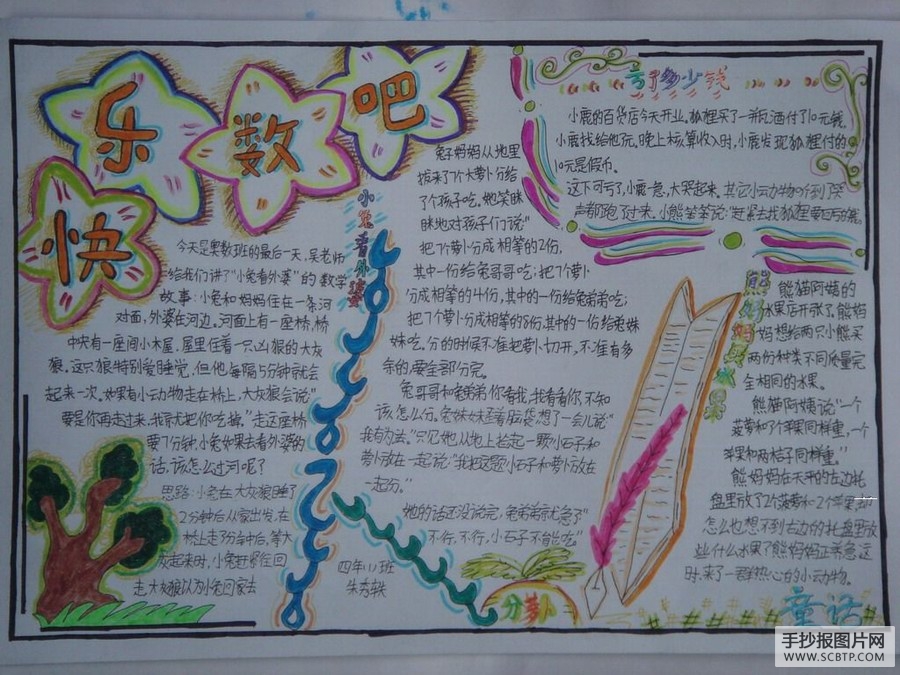 快
乐
数
吧
小兔看外婆
今天是奥数班的最后一天,吴老师
给我们讲了"小兔看外婆"的数学
故事:小兔和妈妈住在一条河
对面,外婆在河边。河面上有一座桥,桥
中央有一座闯小木屋,屋里住着一只凶狠的大灰
狼。这只狼特别爱睡觉,但他每隔5分钟就会
起来一次。如果有小动物走在桥上,大灰狼会说"
要是你再走过来,我就把你吃掉。"走这座桥
要7分钟,小兔如果去看外婆的
话,该怎么过河呢?
思路:小兔在大灰狼睡了
2分钟后从家出发,在
桥上走了3分钟后,等大
灰起来时,小兔赶紧往回
走大灰狼认为小兔回家去
兔子妈妈从地里
拔来了7个大萝卜分给
了个孩子吃。她笑眯
眯地对孩子们说"
把7个萝卜分成相等的2份,
其中一份给兔哥哥吃;把7个萝卜
分成相等的4份,其中的一份给兔弟弟吃;
把7个萝卜分成相等的8份,其中的一份给兔妹
妹吃,分的时候不准把萝卜切开,不准有多
余的,要全部分完。
兔哥哥和兔弟弟你看我,我看看你,不知
该怎么分。兔妹妹托着脑袋想了一会儿说"
我有办法。"只见她从地上拾起一颗小石子和
萝卜放在一起说:"我把这颗小石子和萝卜放在
一起分。"
她的话还没说完,兔弟弟就急了"
不行,不行,小石子不能吃"
四年11班
朱秀轶
分萝卜
亏了多少钱
小鹿的百货店今天开业,狐狸买了一瓶酒付了10元钱,
小鹿找给他元,晚上核算收入时,小鹿发现狐狸付的
10元是假币。
这下可亏了,小鹿一急,大哭起来。其它小动物听到哭
声都跑了过来,小熊笨笨说:"赶紧去找狐狸要回
熊妈妈买水果
熊猫阿姨的
水果店开放了,熊妈
妈想给两只小熊买
两份种类不同质量完
全相同的水果。
熊猫阿姨说"一个
菠萝和7个苹果同样重,一个
苹果和两桔子同样重。"
熊妈妈在天平的左边托
盘里放了2个菠萝和2个苹果
怎么也想不到右边的托盘里放
些什么水果了熊妈妈正着急这
时,来了一群热心的小动物。
童话
手抄报图片网
WWW.SCBTP.COM